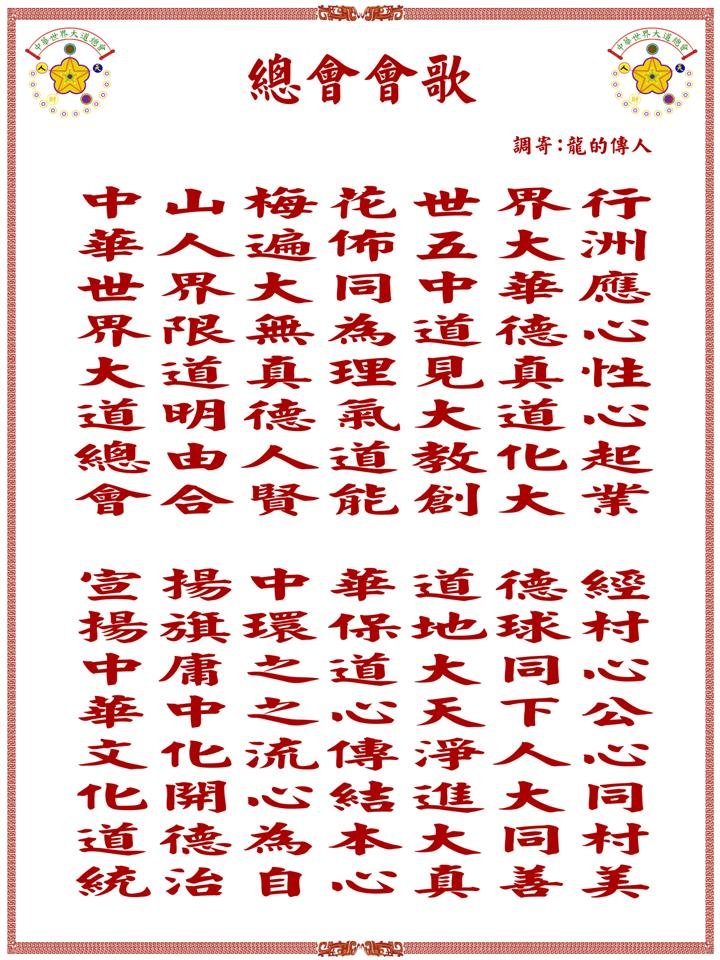 中華世界大道總會
中華世界大道總會
總會會歌
調寄：龍的傳人
中山梅花世界行
華人遍佈五大洲
世界大同中華應
界限無為道德心
大道真理見真性
道明德氣大道心
總由人道教化起
會合賢能創大業
宣揚中華道德經
揚旗環保地球村
中庸之道大同心
華中之心天下公
文化流傳淨人心
化開心結進大同
道德為本大同村
統治自心真善美